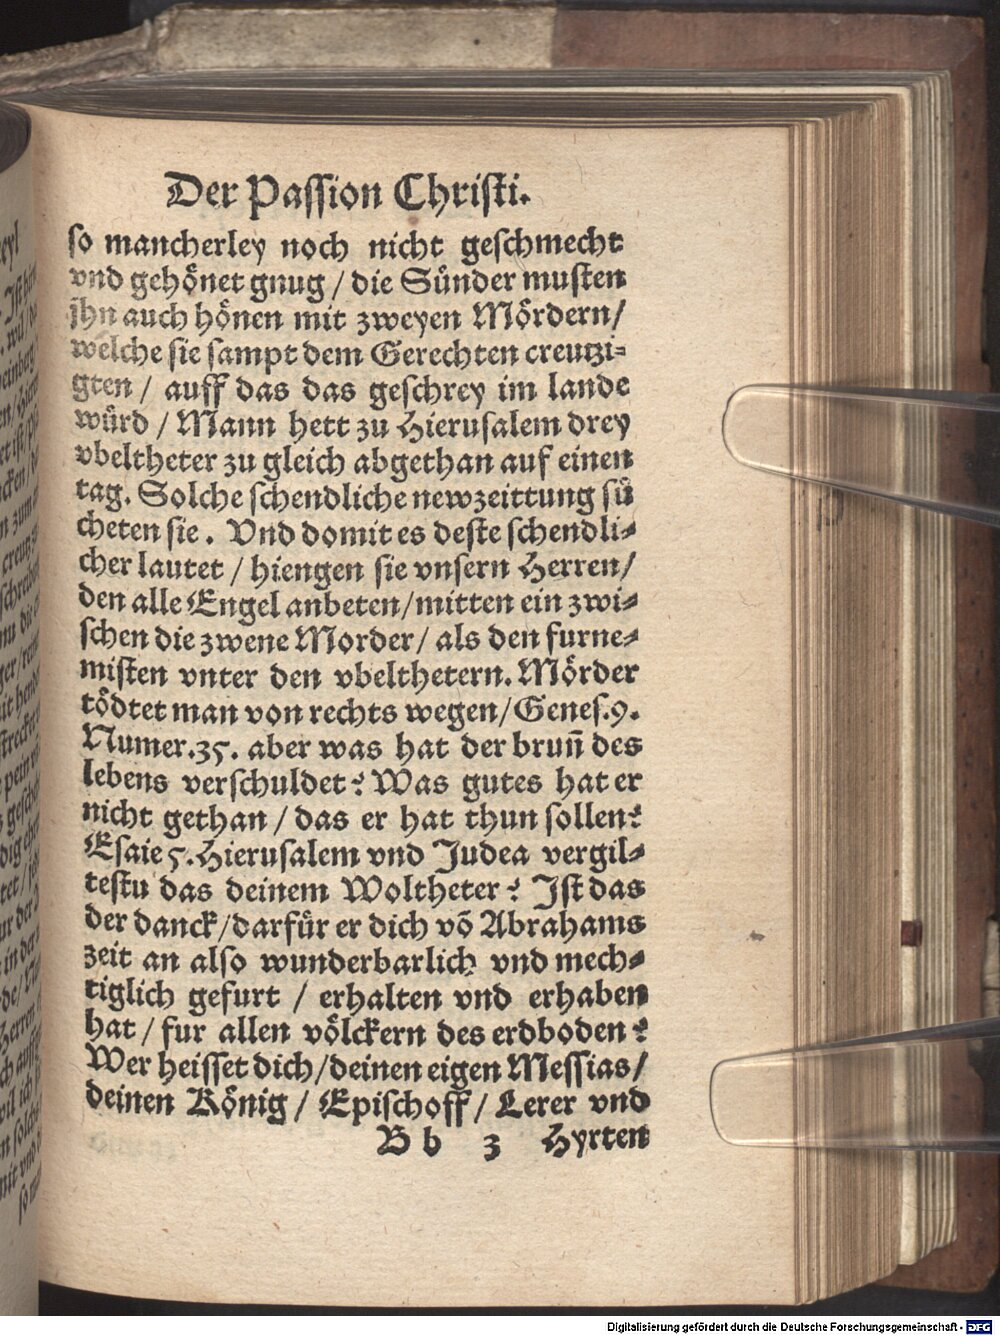 Der Passion Christi.
so mancherley noch nicht geschmecht
vnd gehönet gnug / die Sünder musten
jhn auch hönen mit zweyen Mördern /
welche sie sampt dem Gerechten creutzi-
gten / auff das das geschrey im lande
würd / Mann hett zu Hierusalem drey
vbeltheter zu gleich abgethan auf einen
tag. Solche schendliche newzeittung sü
cheten sie. Vnd domit es deste schendli-
cher lautet / hiengen sie vnsern Herren /
den alle Engel anbeten / mitten ein zwi-
schen die zwene Morder / als den furne-
misten vnter den vbelthetern. Mörder
tödtet man von rechts wegen / Genes. 9.
Numer. 35. aber was hat der brun̄ des
lebens verschuldet? Was gutes hat er
nicht gethan / das er hat thun sollen?
Esaie 5. Hierusalem vnd Judea vergil-
testu das deinem Woltheter? Ist das
der danck / darfür er dich vō Abrahams
zeit an also wunderbarlich vnd mech-
tiglich gefurt / erhalten vnd erhaben
hat / fur allen völckern des erdboden?
Wer heisset dich / deinen eigen Messias /
deinen König / Epischoff / Lerer vnd
B b 3 Hyrten
Digitalisierung gefördert durch die Deutsche Forschungsgemeinschaft - DFG